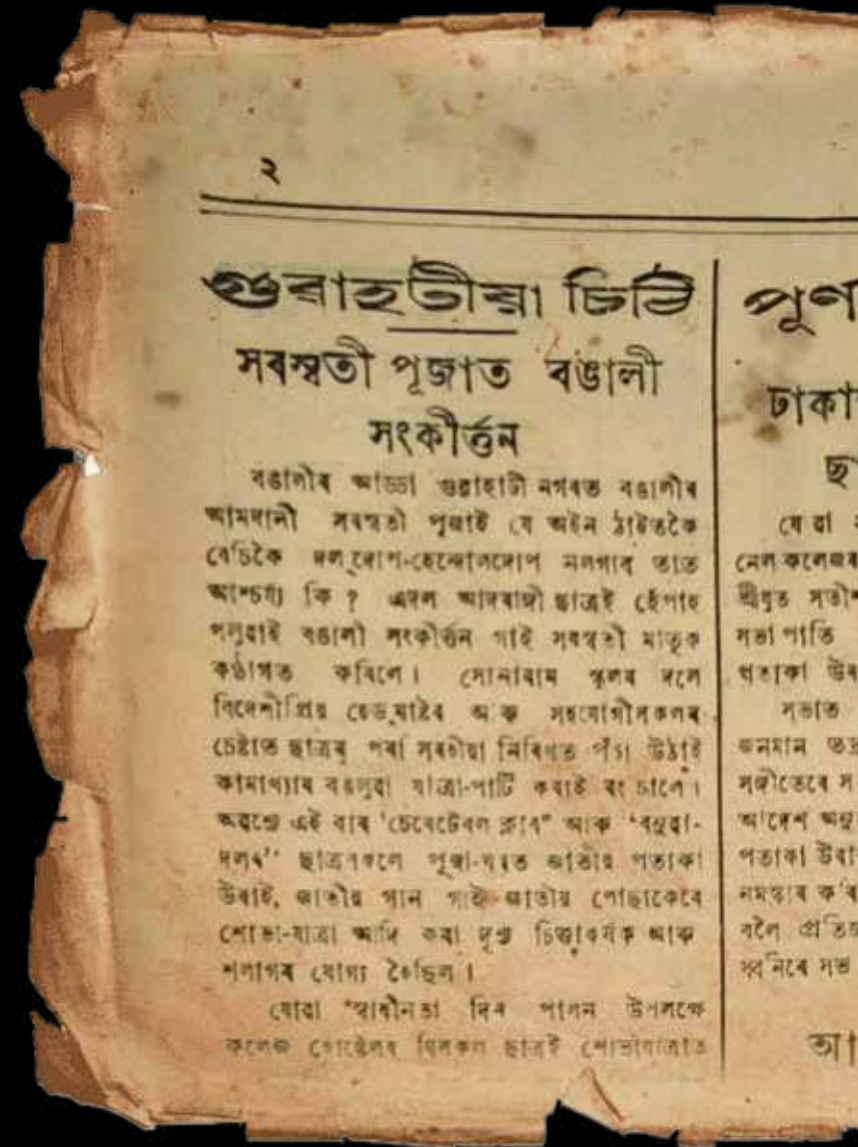 ২
গুৱাহাটীয়া চিঠি
সৰস্বতী পূজাত বঙালী
সংকীৰ্ত্তন
বঙালীৰ আড্ডা গুৱাহাটী নগৰত বঙালীৰ
আমদানী সৰস্বতী পূজাই যে অইন ঠাইতকৈ
বেচিকৈ দল্‌দোপ-হেন্দোলদোপ নলগাব তাত
আশ্চৰ্য্য কি ? এদল আদবাজী ছাত্ৰই হেঁপাহ
পলুৱাই বঙালী সংকীৰ্ত্তন গাই সৰস্বতী মাতৃক
কণ্ঠাগত কৰিলে। সোনাৰাম স্কুলৰ দলে
বিদেশীপ্ৰিয় হেড্‌মাষ্টৰ আৰু সহযোগীসকলৰ
চেষ্টাত ছাত্ৰৰ পৰা সৰতীয়া নিৰিখত পঁচা উঠাই
কামাখ্যাৰ বঙলুৱা যাত্ৰা-পাৰ্টি কৰাই ৰং চালে।
অৱশ্যে এই বাৰ 'চেৰেটেবল ক্লাব" আৰু "বৰুৱা-
দলৰ" ছাত্ৰসকলে পূজা-ঘৰত জাতীয় পতাকা
উৰাই, জাতীয় গান গাই-জাতীয় পোছাকেৰে
শোভা-যাত্ৰা আদি কৰা দৃশ্য চিত্তাকৰ্ষক আৰু
শলাগৰ যোগ্য হৈছিল।
যোৱা স্বাধীনতা দিন পালন উপলক্ষে
কলেজ হোষ্টেলৰ ছাত্ৰই শোভাযাত্ৰাত
পূৰ্ণ
ঢাকা
ছ
যোৱা
নেল কলেজৰ
শ্ৰীযুত সতীশ
সভাপতি
পতাকা
সভাত
জনমান
সঙ্গীতেৰে
আদেশ
পতাকা
নমস্কাৰ ক'ৰ
বলৈ
সভ
আ